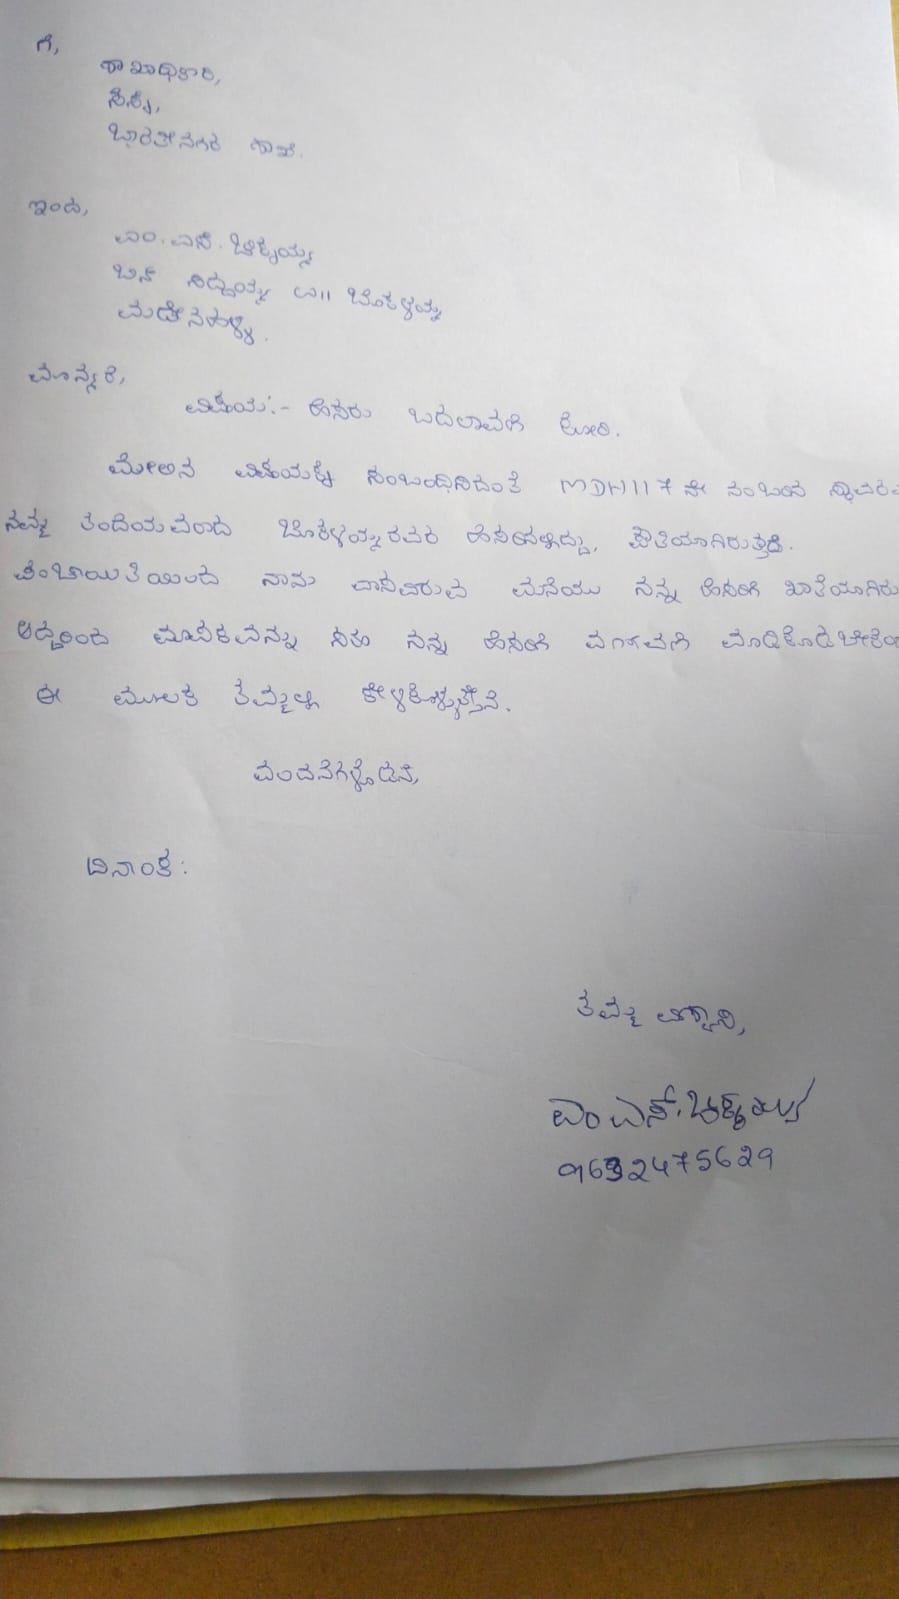 ಗೆ,
ಶಾಖಾಧಿಕಾರಿ,
ಸೆಸ್ಕ್,
ಭಾರತೀನಗರ ಶಾಖೆ.
ಇಂದ,
ಎಂ.ಎಸ್. ಚಿಕ್ಕಯ್ಯ
ಬಿನ್ ಸಿದ್ದಯ್ಯ ಲೇ॥ ಬೊಕ್ಕಳಯ್ಯ
ಮಡೇನಹಳ್ಳಿ.
ಮಾನ್ಯರೆ,
ವಿಷಯ:- ಹೆಸರು ಬದಲಾವಣೆ ಕೋರಿ.
ಮೇಲಿನ ವಿಷಯಕ್ಕೆ ಸಂಬಂಧಿಸಿದಂತೆ MDH117 ನೇ ನಂಬರಿನ
ನಮ್ಮ ತಂದೆಯವರಾದ ಹೆಸರಿನಲ್ಲಿದ್ದು, ಪೌತಿಯಾಗಿರುತ್ತಾರೆ.
ಪಂಚಾಯಿತಿಯಿಂದ ನಾನು ವಾಸವಿರುವ ಮನೆಯು ನನ್ನ ಹೆಸರಿಗೆ ಖಾತೆಯಾಗಿರು
ಆದ್ದರಿಂದ ಮಾಪಕವನ್ನು ಸಹ ನನ್ನ ಹೆಸರಿಗೆ ವರ್ಗಾವಣೆ ಮಾಡಿಕೊಡಬೇಕೆಂ
ಈ ಮೂಲಕ ತಮ್ಮಲ್ಲಿ ಕೇಳಿಕೊಳ್ಳುತ್ತೇನೆ.
ವಂದನೆಗಳೊಡನೆ,
ದಿನಾಂಕ:
ತಮ್ಮ ವಿಶ್ವಾಸಿ,
ಎಂ ಎಸ್. ಚಿಕ್ಕಯ್ಯ
9632475629